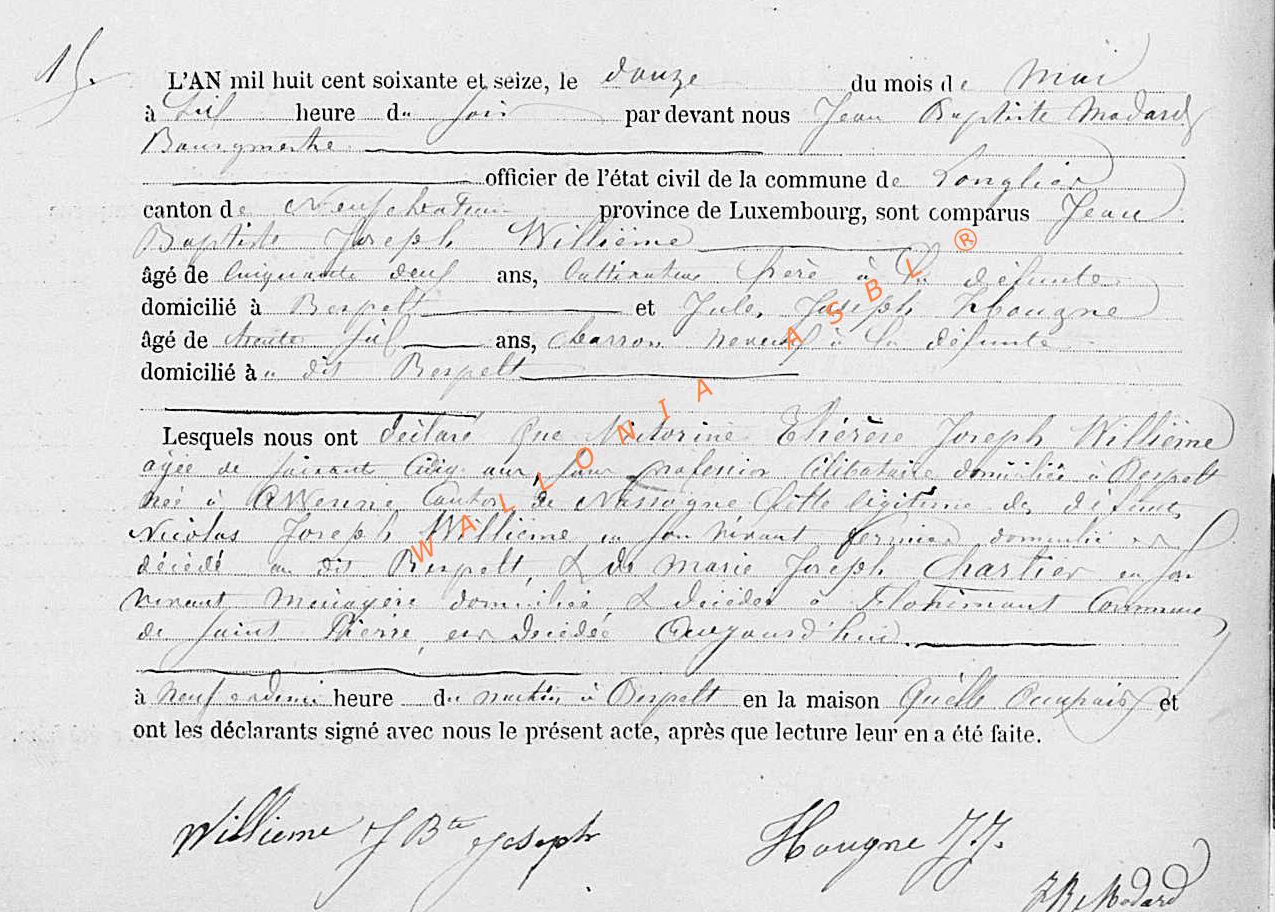 15.
L'AN mil huit cent soixante et seize, le douze du mois de Mai
à Six heure du soir par devant nous Jean Baptiste Modard
Bourgmestre
officier de l'état civil de la commune de Longlier
canton de Neufchateau province de Luxembourg, sont comparus Jean
Baptiste Joseph Willième
âgé de Cinquante deux ans, Cultivateur frère à la défunte
domicilié à Respelt et Jules Joseph Hougne
âgé de trente six ans, Charron neveu à la défunte
domicilié à u dit Respelt
Lesquels nous ont déclaré que Victorine Thérèse Joseph Willième
agée de soixante cinq ans, sans profession célibataire domiciliée à Respelt
née à Awenne Canton de Nassogne fille légitime des défunts
Nicolas Joseph Willième en son vivant fermier domicilié et
décédé au dit Respelt, & de Marie Joseph Charlier en son
vivant ménagère domiciliée & décédée à Flohimont Commune
de Saint Pierre, est décédée Aujourd'hui
à neuf et demi heure du matin à Respelt en la maison Qu'elle Occupait et
ont les déclarants signé avec nous le présent acte, après que lecture leur en a été faite.
Willieme J Bte Joseph Hougne J J.
J B Modard
WALLONIA ASBL ®